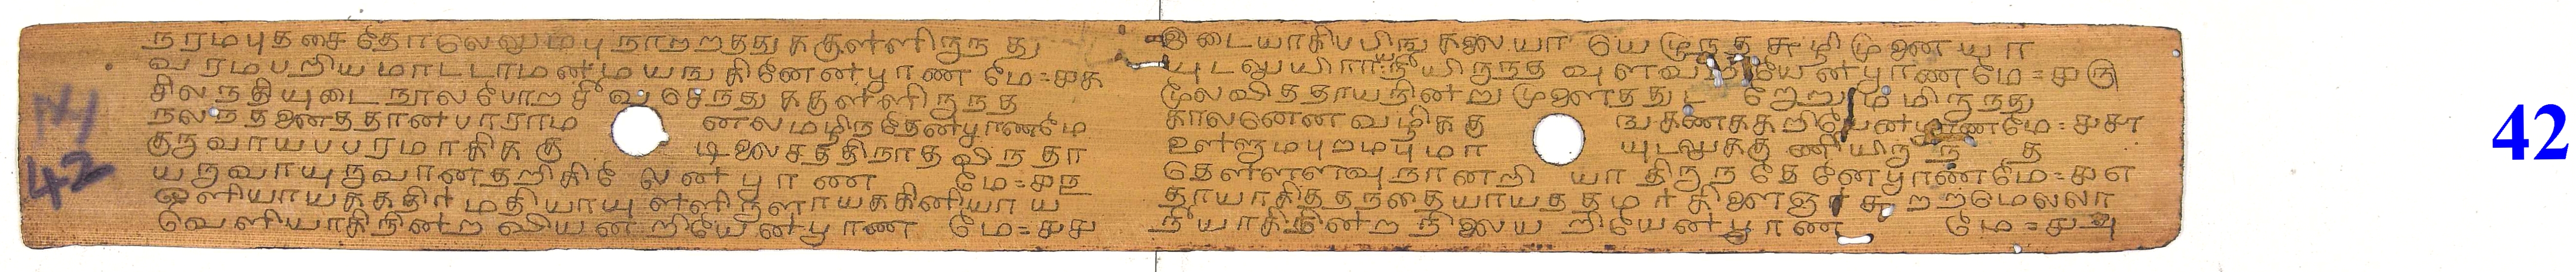 நரமபுதசை தோலெலுமபு நாறறதது ககுளளிருநது
வரமபறிய மாடடாமன மயஙகினேனபூரணமே=௪௧
சிலநதியுடைநூல போற சீவ செநது ககுளளிருநத
நலநதனைததானபாராம னலமழிநதேனபூரணமே
குருவாயபபரமாகிககு டிலைசததிநாதவிநதா
யருவாயுருவானதறிகிலேனபூரணமே=௪௩
ஒளியாயககதிர மதியாயு ளளிருளாயககினியாய
வெளியாகிநினற வியனறியேனபூரணமே=௪௪
இடையாகிபபிஙகலையா யெழுநத சுழிமுனையா
யுடலுயிராநீயிருநத வுளவறியேனபூரணமே=௪௫
மூலவிததாயநினறு முளைததுட றோறுமிருநது
காலனென வழிககு ஙகணககறியேனபூரணமே=௪௬
உளளுமபுறமபுமா யுடலுககுணியிருநத
தெளளளவுநானறி யாதிருநதேனேபூரணமே=௪௭
தாயாகிததநதையாயததமர கிளைஞர சுறறமெலலா
நீயாகிநினற நிலையறியேனபூரணமே=௪௮
42
42